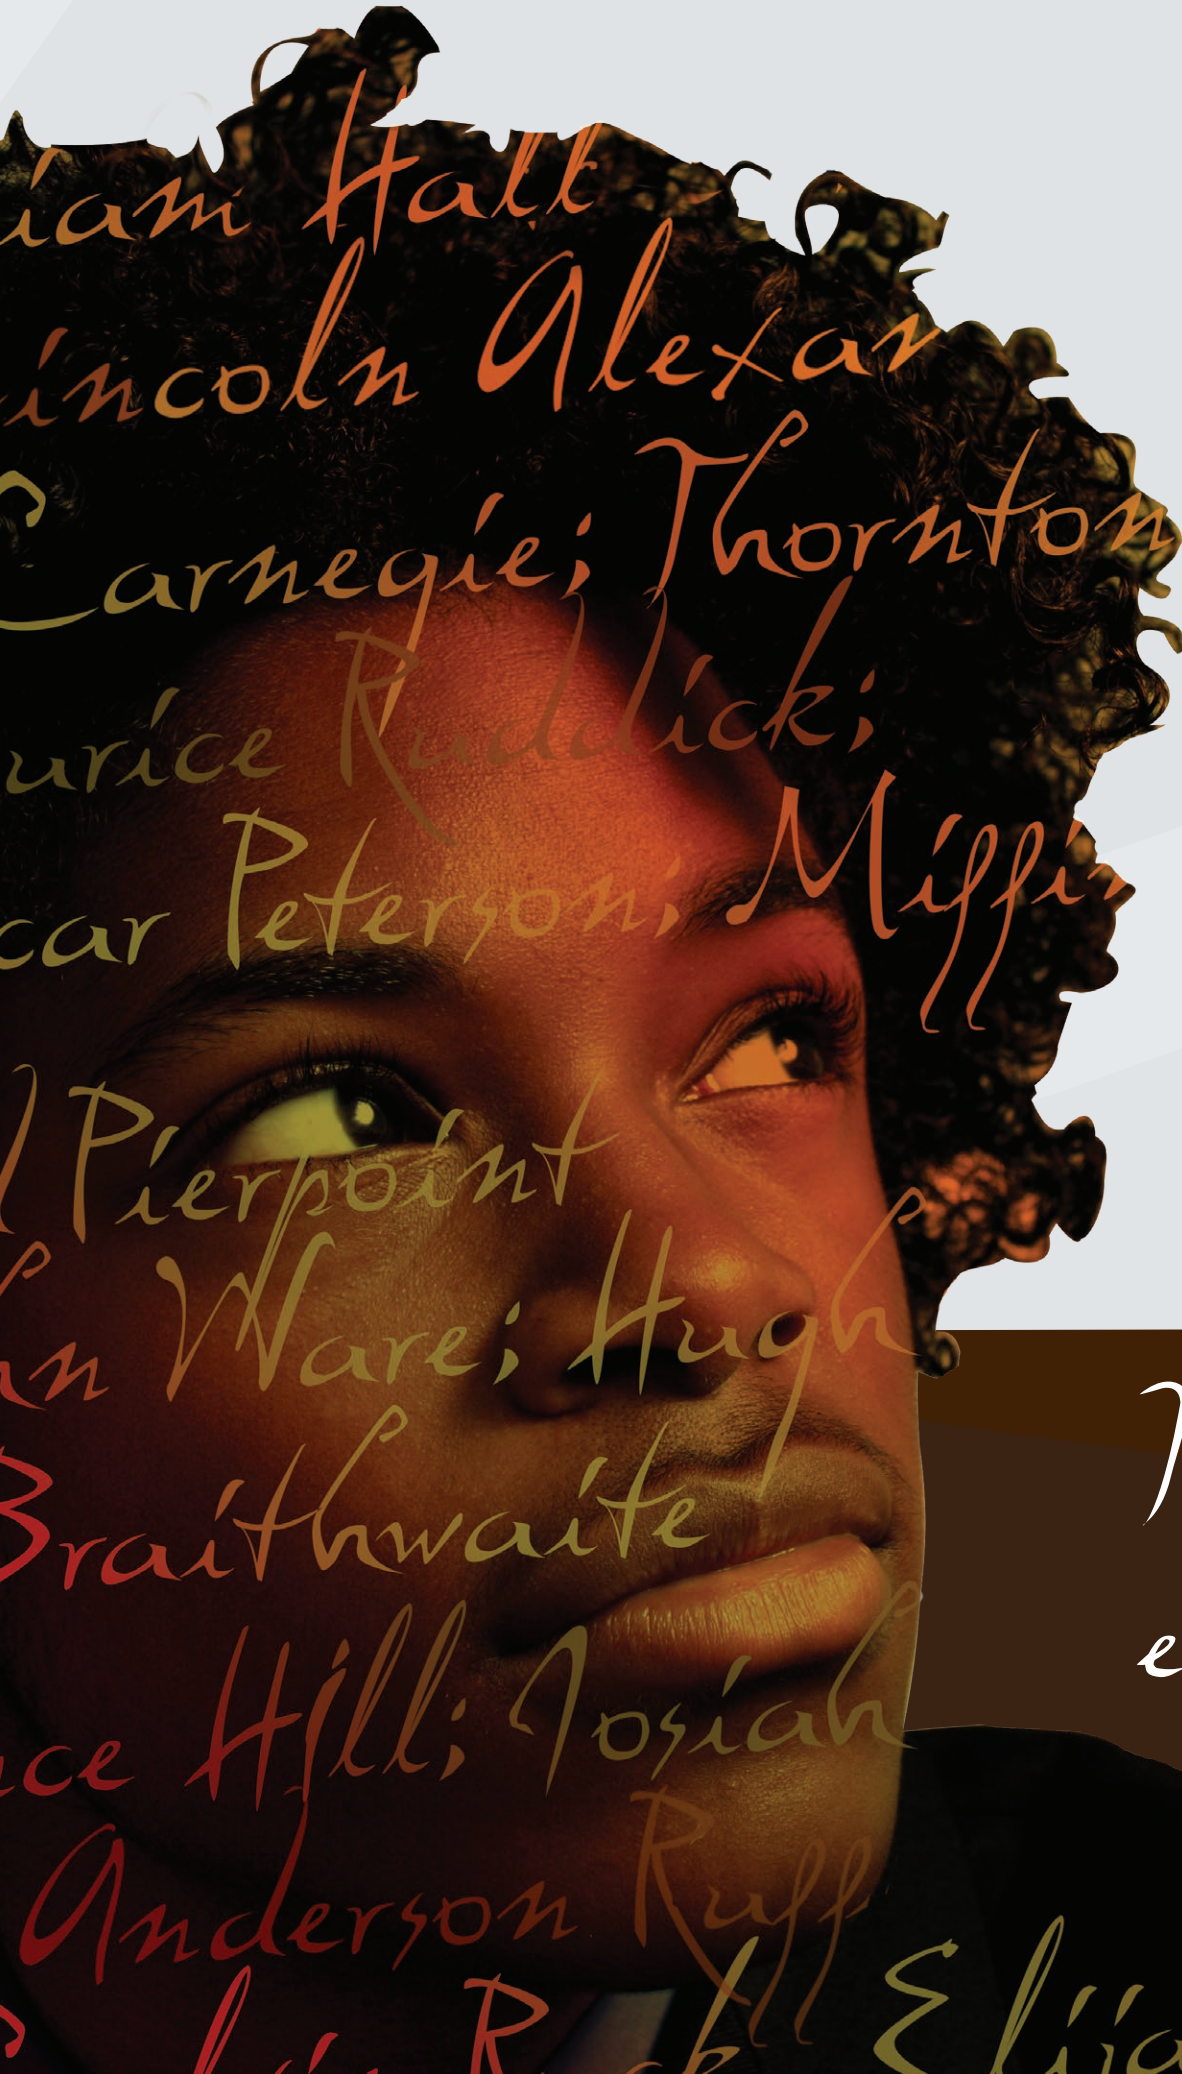 iam Hall
incoln Alexan
Carnegie; Thornton
urice Ruddick;
car Peterson; Miffin
Pierpoint
hn Ware; Hugh
Braithwaite
ce Hill; Josiah
Anderson Ruff
Elija